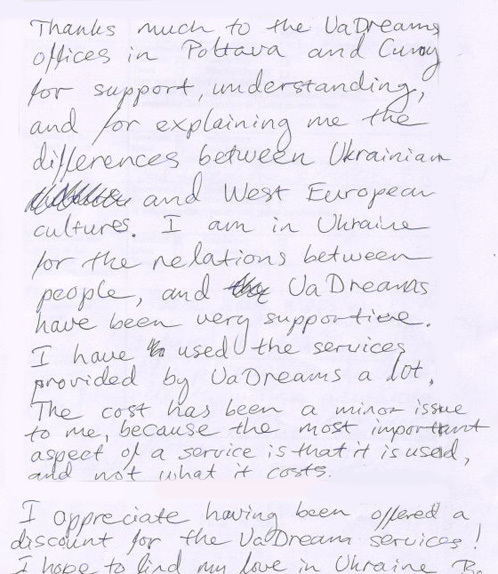 Thanks much to the UaDreams
offices in Poltava and Cumy
for support, understanding,
and for explaining me the
differences between Ukrainian
and West European
cultures. I am in Ukraine
for the relations between
people, and UaDreams
have been very supportive.
I have used the services
provided by UaDreams a lot.
The cost has been a minor issue
to me, because the most important
aspect of a service is that it is used,
and not what it costs.
I appreciate having been offered a
discount for the UaDream services!
I hope to find my love in Ukraine